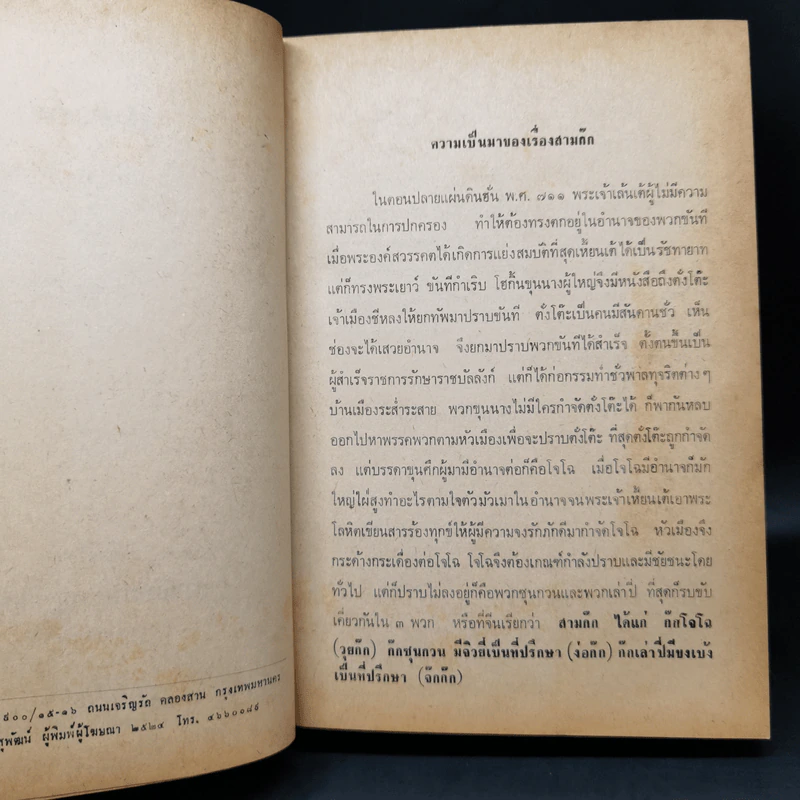 ๕๐๐/๑๕-๑๖ ถนนเจริญรัถ คลองสาน กรุงเทพมหานคร
สุพัฒน์ ผู้พิมพ์ผู้โฆษณา ๒๕๒๔ โทร. ๔๖๖๐๑๘๘
ความเป็นมาของเรื่องสามก๊ก
ในตอนปลายแผ่นดินฮั่น พ.ศ. ๗๑๑ พระเจ้าเล้นเต้ผู้ไม่มีความ
สามารถในการปกครอง ทำให้ต้องทรงตกอยู่ในอำนาจของพวกขันที
เมื่อพระองค์สวรรคตได้เกิดการแย่งสมบัติที่สุดเหี้ยนเต้ ได้เป็นรัชทายาท
แต่ก็ทรงพระเยาว์ ขันทีกำเริบ โฮกิ๋นขุนนางผู้ใหญ่จึงมีหนังสือถึงตั๋งโต๊ะ
เจ้าเมืองซีหลงให้ยกทัพมาปราบขันที ตั๋งโต๊ะเป็นคนมีสันดานชั่ว เห็น
ช่องจะได้เสวยอำนาจ จึงยกมาปราบพวกขันทีได้สำเร็จ ตั้งตนขึ้นเป็น
ผู้สำเร็จราชการรักษาราชบัลลังก์ แต่ก็ได้ก่อกรรมทำชั่วพาลทุจริตต่าง ๆ
บ้านเมืองระส่ำระสาย พวกขุนนางไม่มีใครกำจัดตั๋งโต๊ะได้ ก็พากันหลบ
ออกไปหาพรรคพวกตามหัวเมืองเพื่อจะปราบตั๋งโต๊ะ ที่สุดตั๋งโต๊ะถูกกำจัด
ลง แต่บรรดาขุนศึกผู้มามีอำนาจต่อก็คือโจโฉ เมื่อโจโฉมีอำนาจก็มัก
ใหญ่ใฝ่สูงทำอะไรตามใจตัวมัวเมาในอำนาจจนพระเจ้าเหี้ยนเต้เอาพระ
โลหิตเขียนสารร้องทุกข์ให้ผู้มีความจงรักภักดีมากำจัดโจโฉ หัวเมืองจึง
กระด้างกระเดื่องต่อโจโฉ โจโฉจึงต้องเกณฑ์กำลังปราบและมีชัยชนะโดย
ทั่วไป แต่ก็ปราบไม่ลงอยู่ก็คือพวกซุนกวนและพวกเล่าปี่ ที่สุดก็รบขับ
เคี่ยวกันใน ๓ พวก หรือที่จีนเรียกว่า สามก๊ก ได้แก่ ก๊กโจโฉ
(วุยก๊ก) ก๊กซุนกวน มีจิวยี่เป็นที่ปรึกษา (ง่อก๊ก) ก๊กเล่าปี่มีขงเบ้ง
เป็นที่ปรึกษา (จ๊กก๊ก)